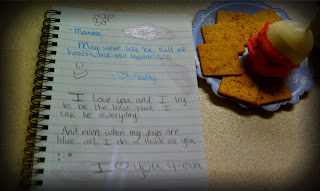 May your life be full of
health, love and
I Love you and I try
to be the best that I
can be everyday.
And even when my days are
blue all I do is think of you
I ♡ you 4-eva